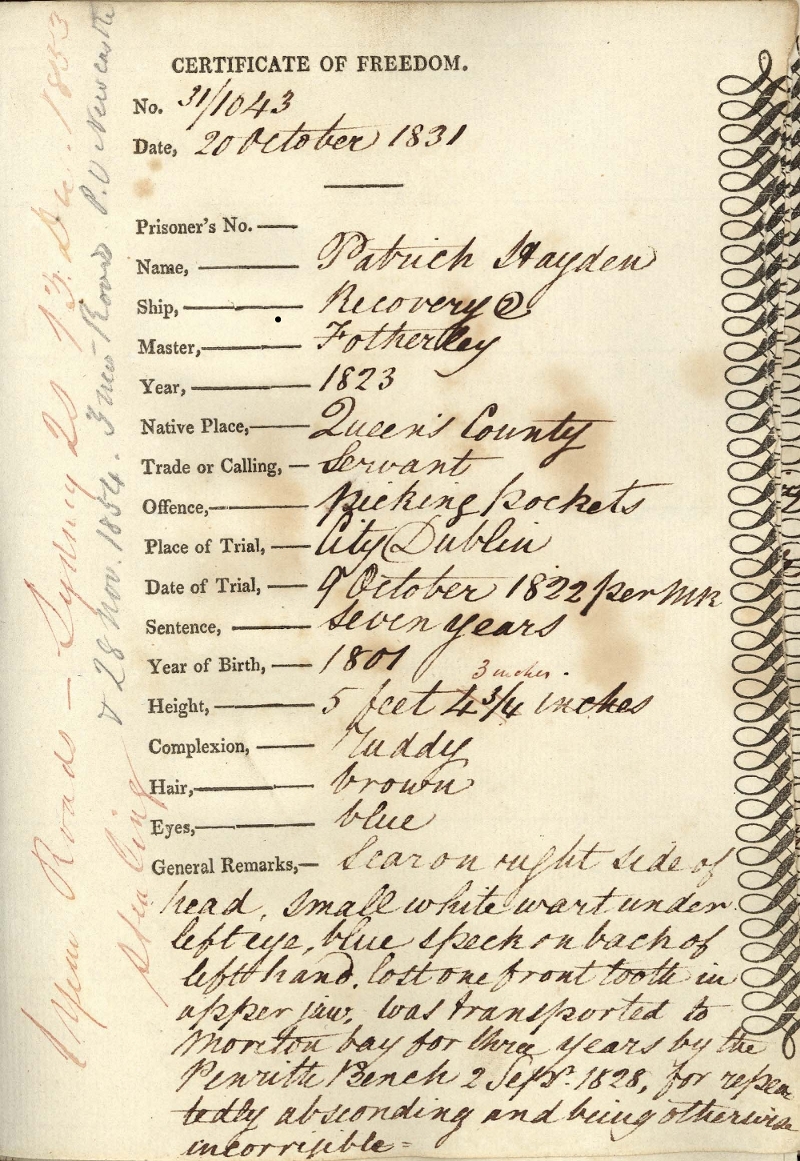 CERTIFICATE OF FREEDOM.
No. 31/1043
Date, 20 October 1831
Prisoner's No. —
Name, — Patrick Hayden
Ship, — Recovery 2
Master, — Fotherley
Year, — 1823
Native Place, — Queen's County
Trade or Calling, — Servant
Offence, — Picking pockets
Place of Trial, — City Dublin
Date of Trial, — 9 October 1822 per MR
Sentence, — seven years
Year of Birth, — 1801
3 inches.
Height, — 5 feet 4 3/4 inches
Complexion, — Ruddy
Hair, — brown
Eyes, — blue
General Remarks, — Scar on right side of
head, small white wart under
left eye, blue speck on back of
left hand, lost one front tooth in
upper jaw, was transported to
Moreton bay for three years by the
Penrith Bench 2 Sepr. 1828, for repea
tedly absconding and being otherwise
incorrigible =
1 year Roads — Sydney 2S 13 Dec. 1853
stealing
& 28 Nov. 1854. 3 mos P.O Newcastle